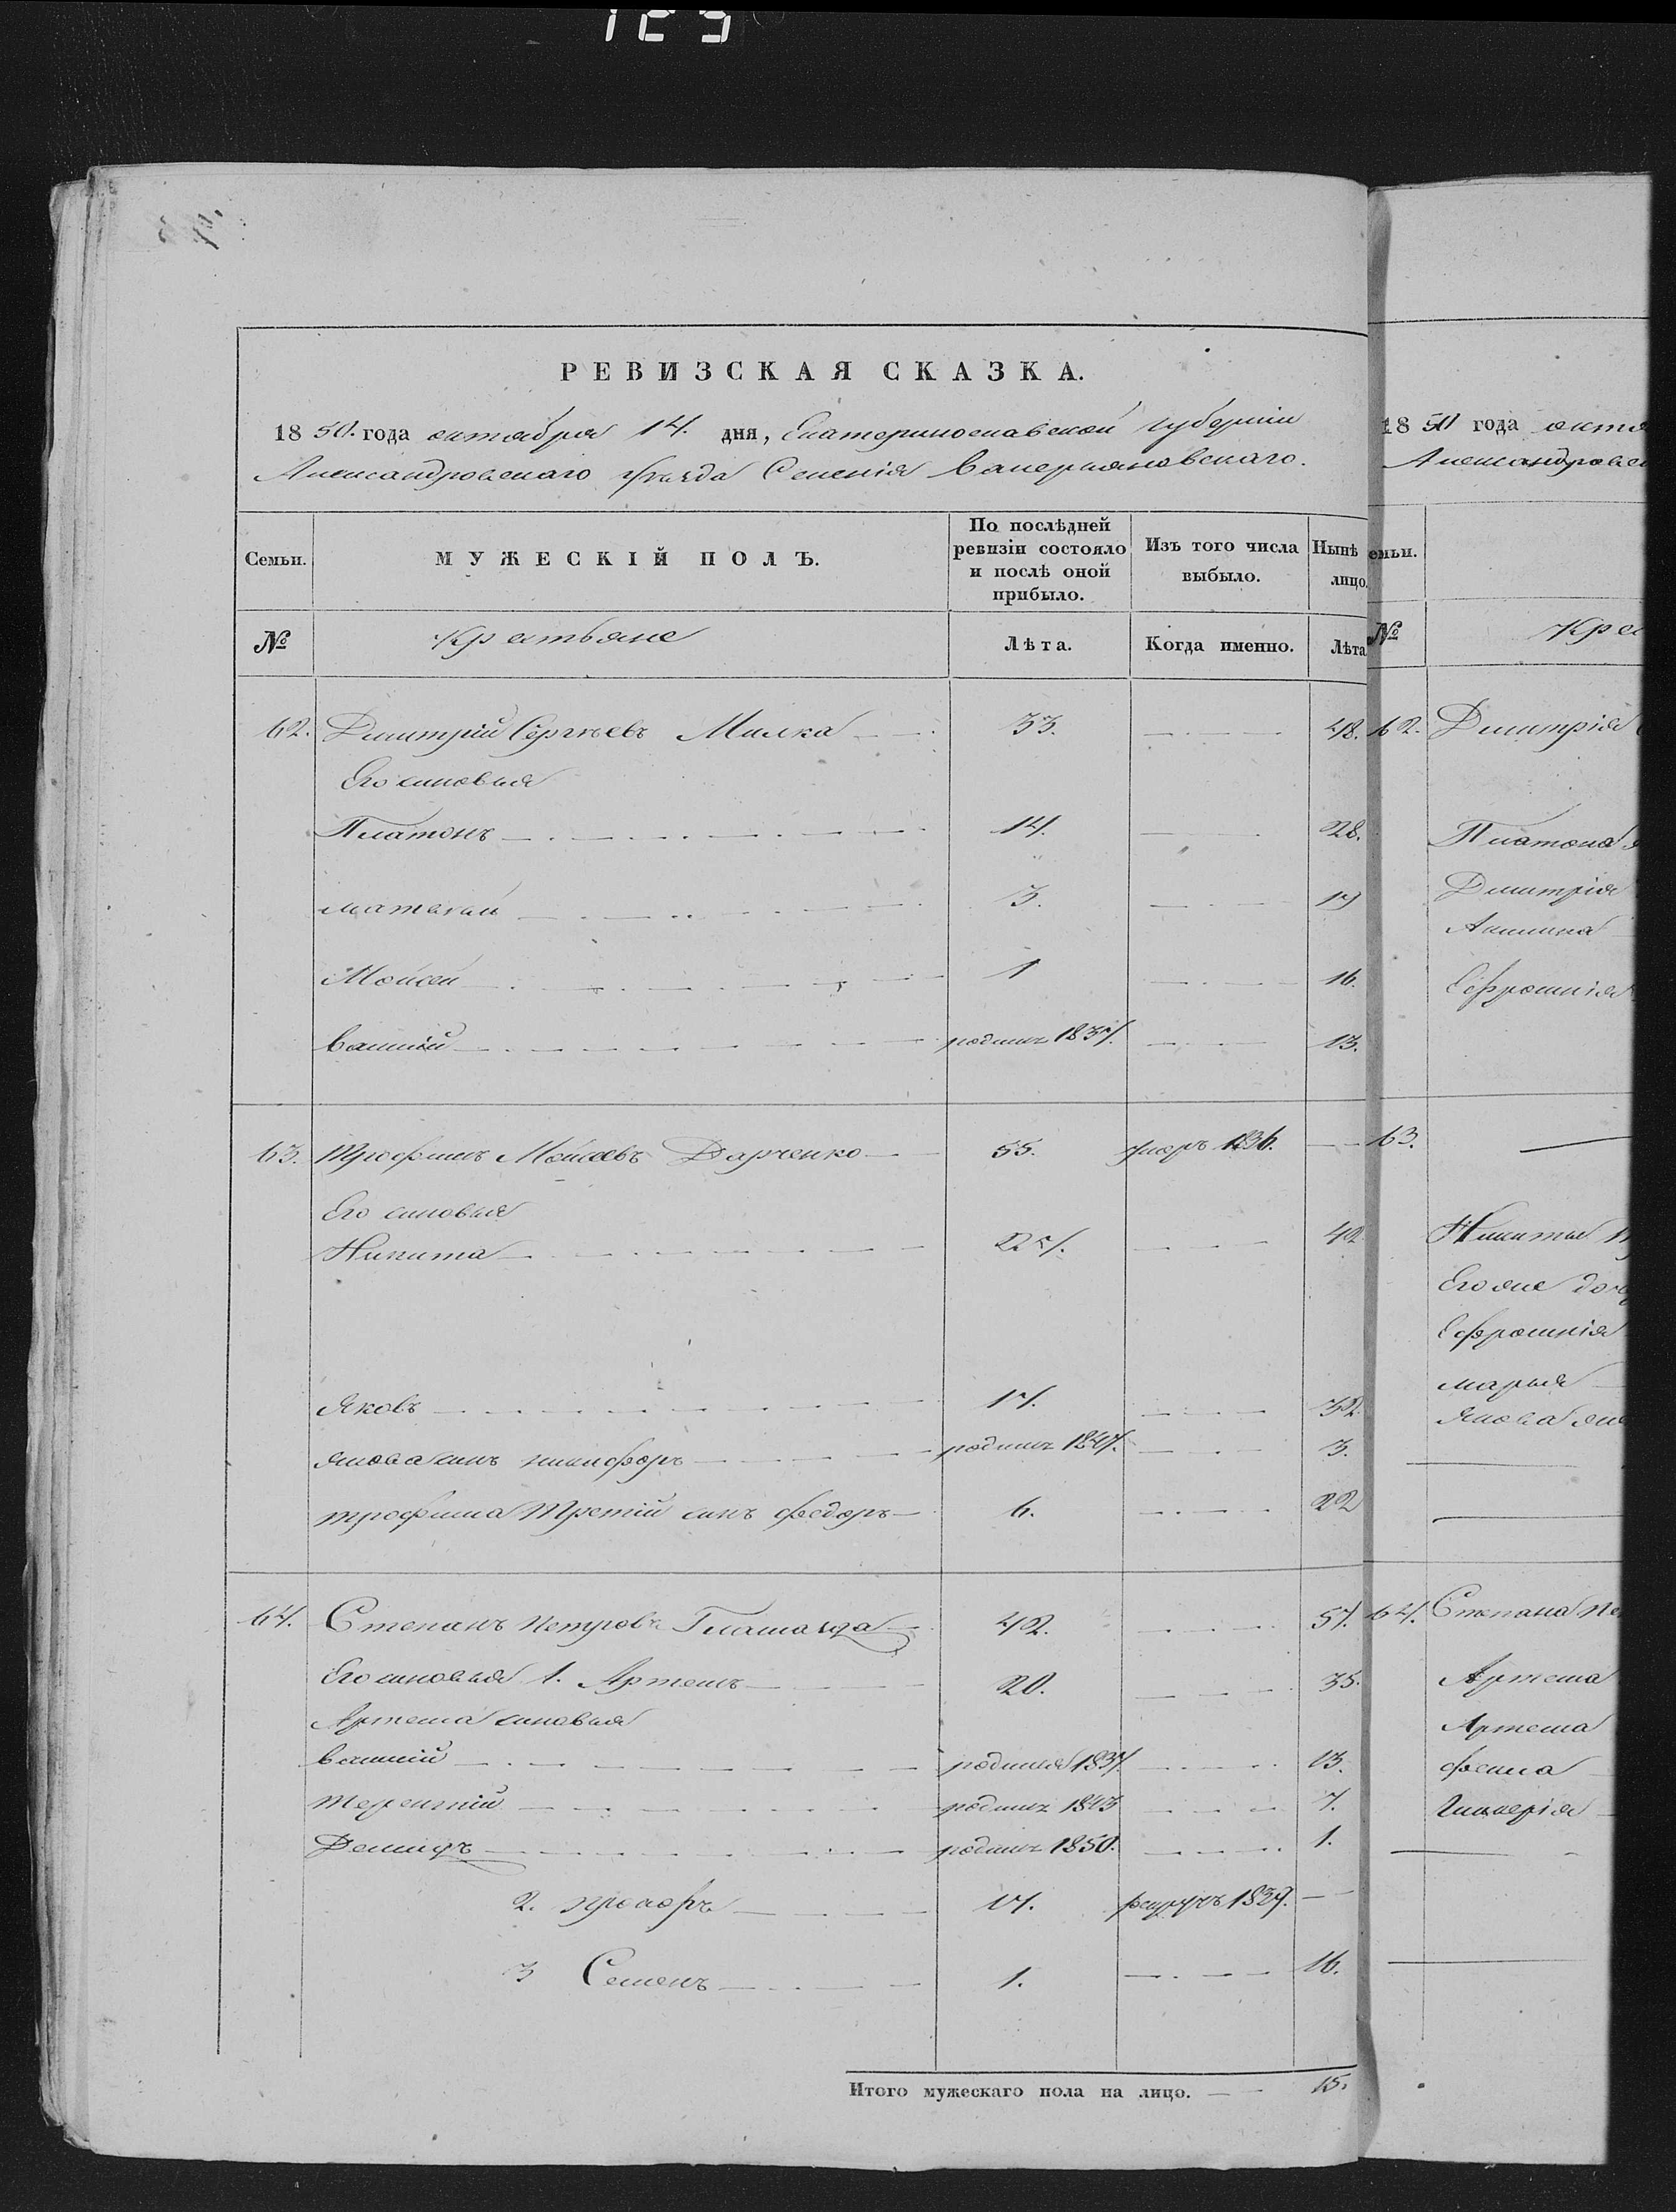 123
РЕВИЗСКАЯ СКАЗКА.
1850. года октября 14. дня, Екатеринославской губерніи
Александровскаго уѣзда Селенія Валерьяновскаго.
Семьи.
МУЖЕСКІЙ ПОЛЪ.
По послѣдней ревизіи состояло и послѣ оной прибыло.
Изъ того числа выбыло.
Нынѣ лицо.
№
Крестьяне
Лѣта.
Когда именно.
Лѣта
62. Дмитрій Сергѣевъ Милка 33. 48.
Его сыновья
Платонъ 14. 28.
Матвей 3. 17
Мойсей 1 16.
василій родился 1837. 13.
63. Трофимъ Мойсеевъ Дарченко 55. умеръ 1836.
Его сыновья
Никита 27. 42
Яковъ 17. 32
якова сынъ никифоръ родился 1847. 3.
трофима Третій сынъ федоръ 6. 22
64. Степанъ Петровъ 42. 57.
Его сыновья 1. Артемъ 20. 35.
Артема сыновья
василій родился 1837 13.
терентій родился 1843 7.
Демидъ родился 1850. 1.
2. прокофъ 17. рекрутъ 1839.
3 Семенъ 1. 16.
Итого мужескаго пола на лицо. 15.
1850 года октя
Александровск
емьи.
№
Крес
62. Дмитрія
Платона
Дмитрія
Акилина
Ефросинія
63.
Никиты
Его же доч
Ефросинія
марья
Якова же
64. Степана Пе
Артема
Артема
фекла
Гликерія